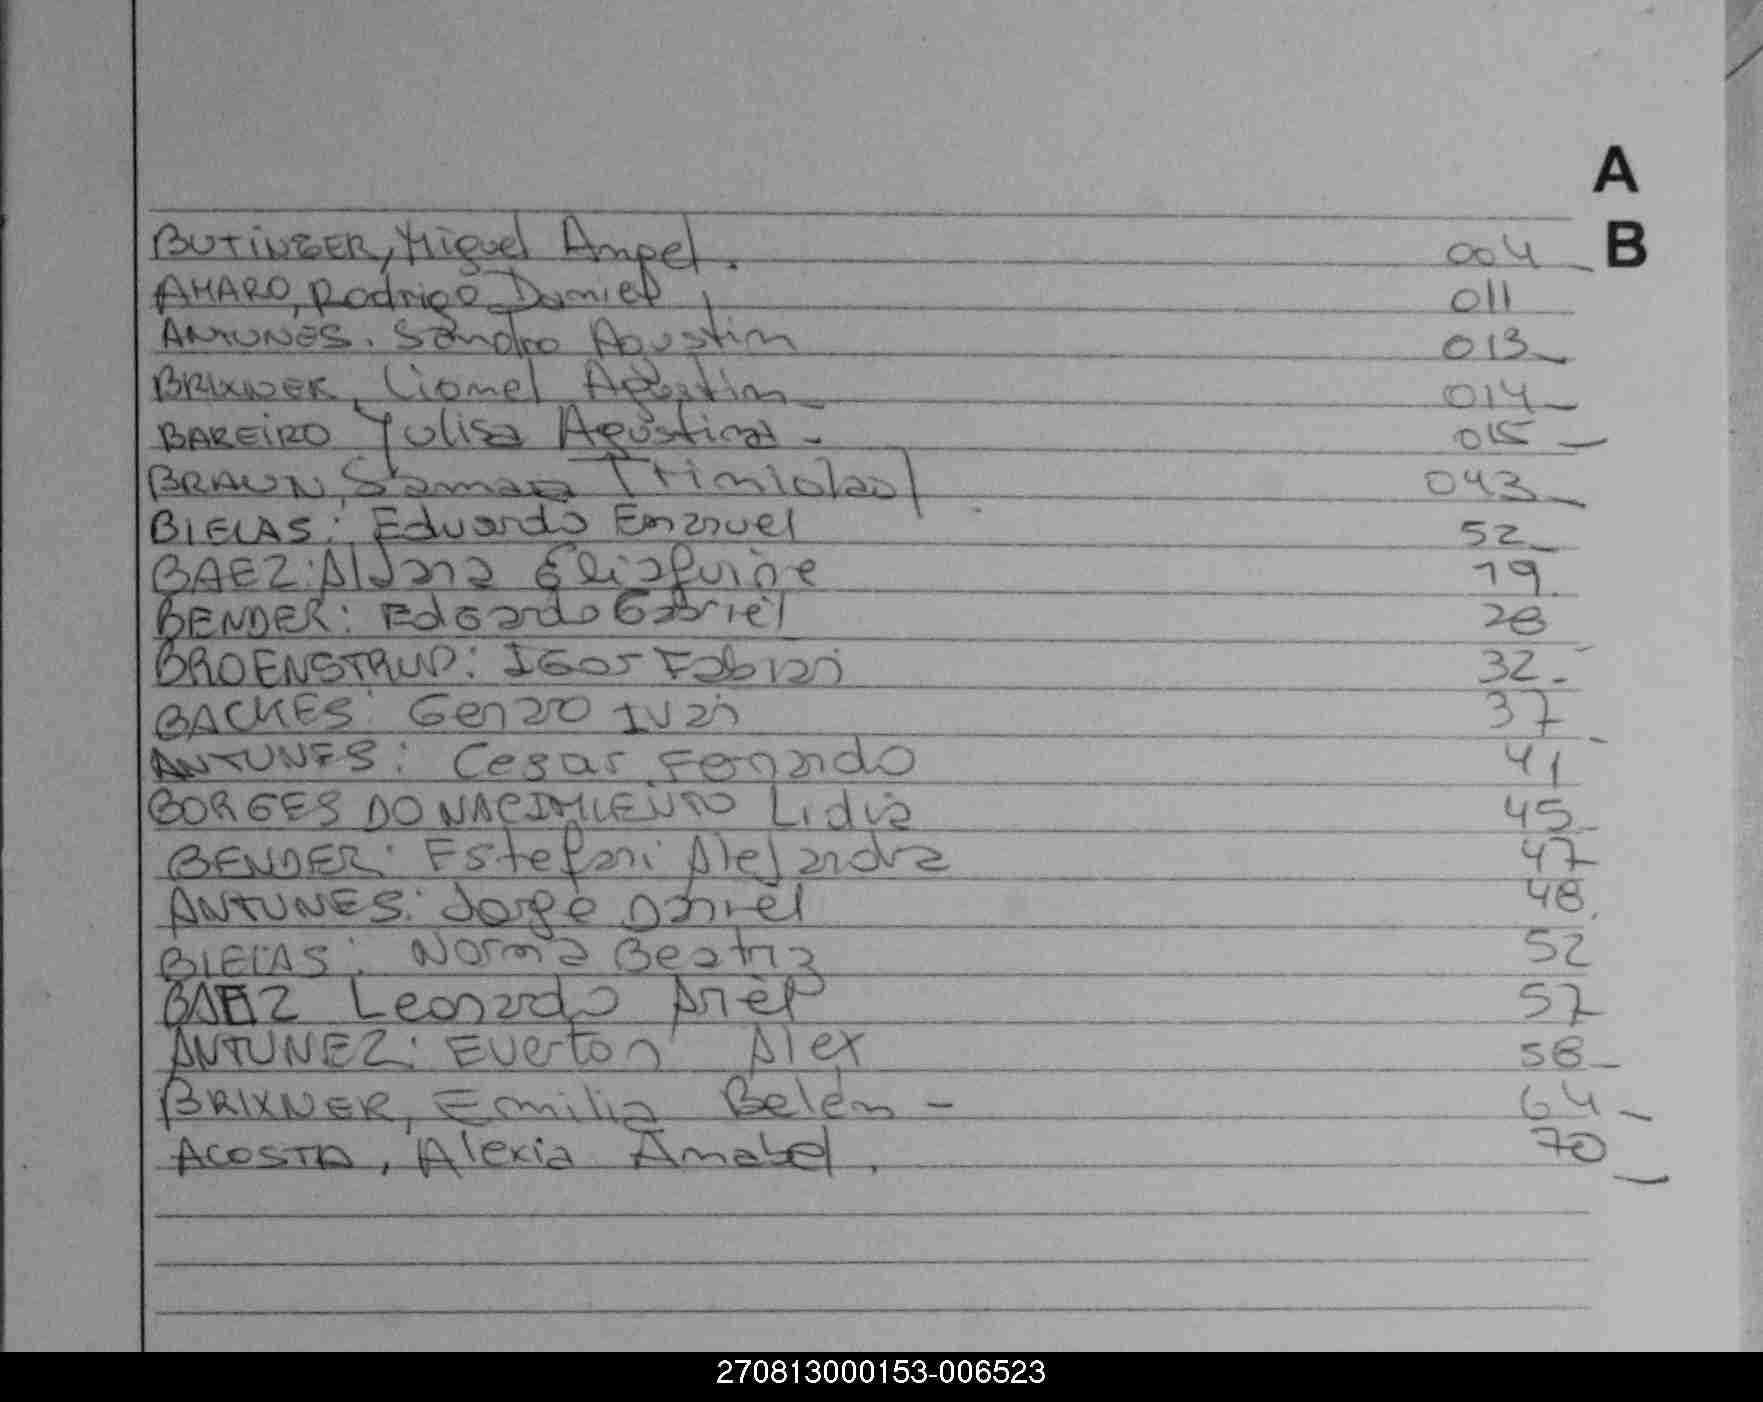 A
B
BUTINGER, Miguel Angel. 004
AMARO, Rodrigo Daniel 011
ANTUNES. Sandro Agustin 013
BRIXNER, Lionel Agustin 014
BAREIRO Yulisa Agustina - 015
BRAUN, Samara 043
BIELAS: Eduardo Emanuel 52
BAEZ: Aldana 19
BENDER: Edgardo Gabriel 28
BROENSTRUP: Igor Fabian 32
BACKES: Genzo Ivan 37
ANTUNES: Cesar Fernando 41
BORGES DO NACIMIENTO Lidia 45
BENDER: Estefani Alejandra 47
ANTUNES: Jorge Daniel 48
BIELAS: Norma Beatriz 52
BAEZ Leonardo Ariel 57
ANTUNEZ: Everton Alex 58
BRIXNER, Emilia Belén - 64
ACOSTA, Alexia Anabel. 70
270813000153-006523